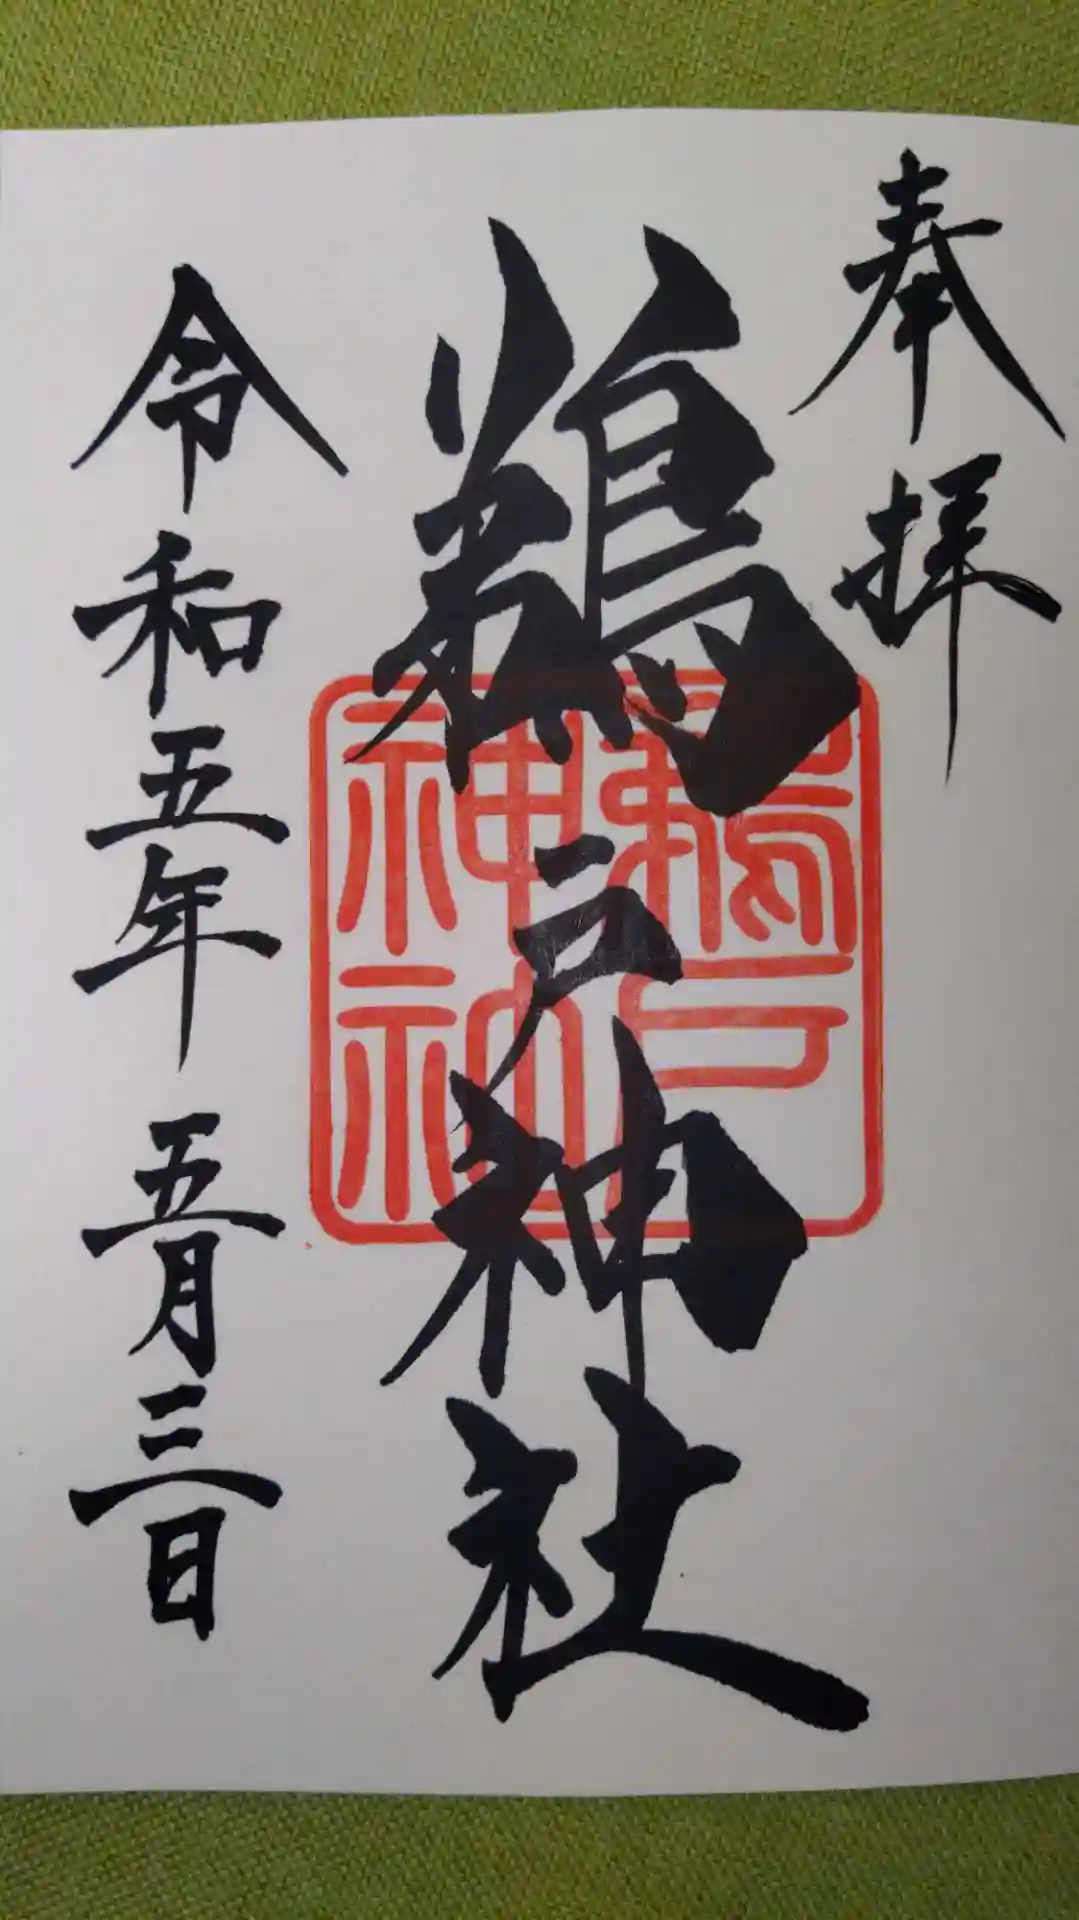 奉拝
鵜戸神社
鵜戸
神社
令和五年 五月三日